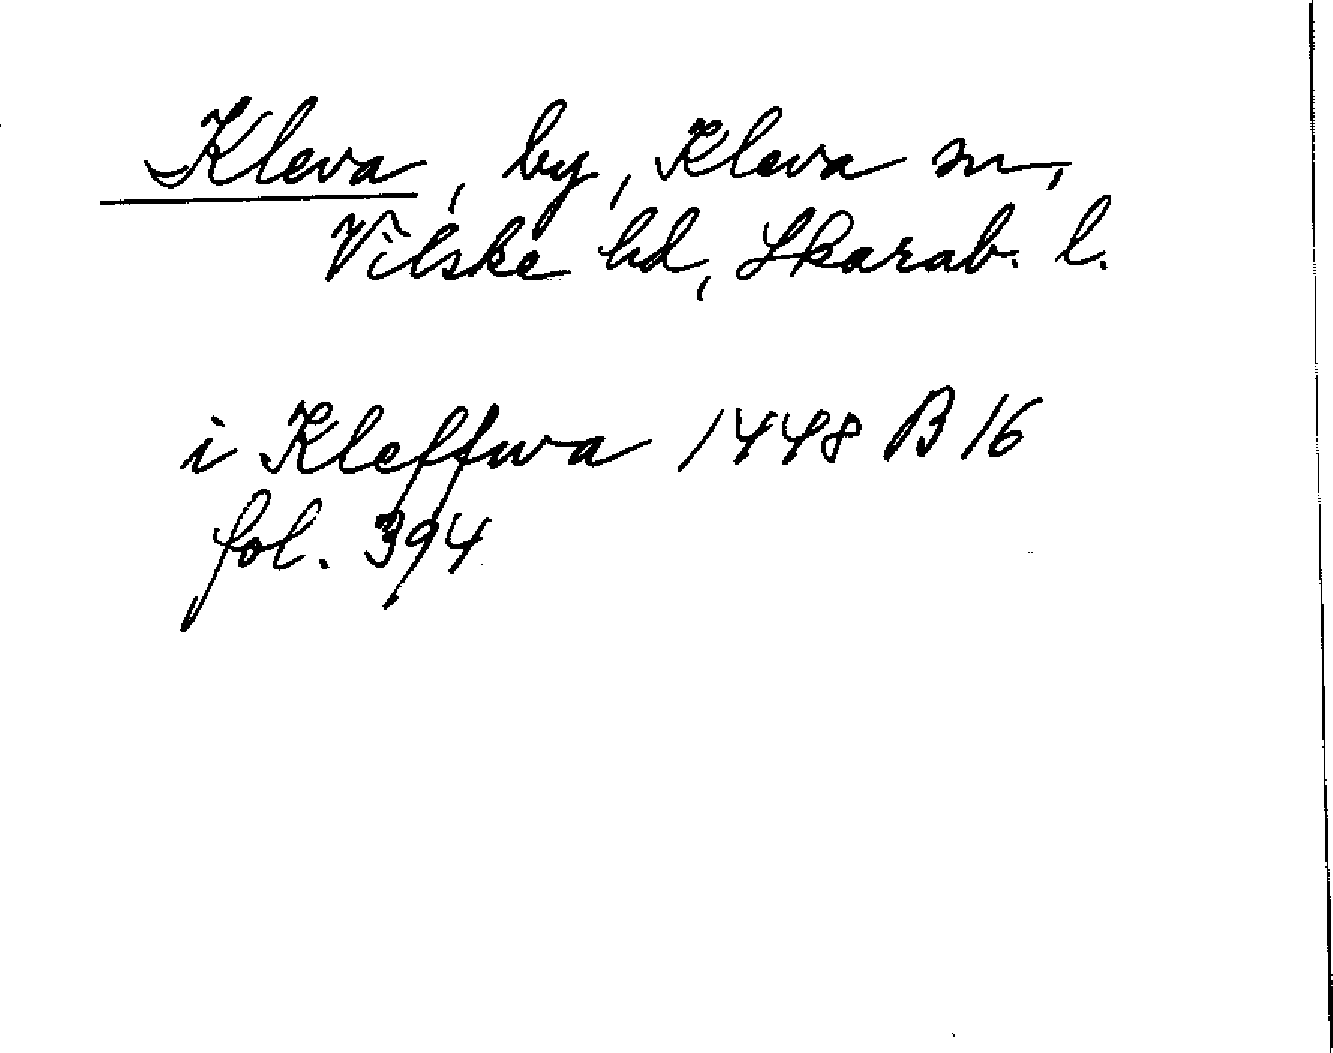 Kleva, by, Kleva sn,
Vilske hd, Skarab. l.
i Kleffwa 1448 B 16
fol. 394